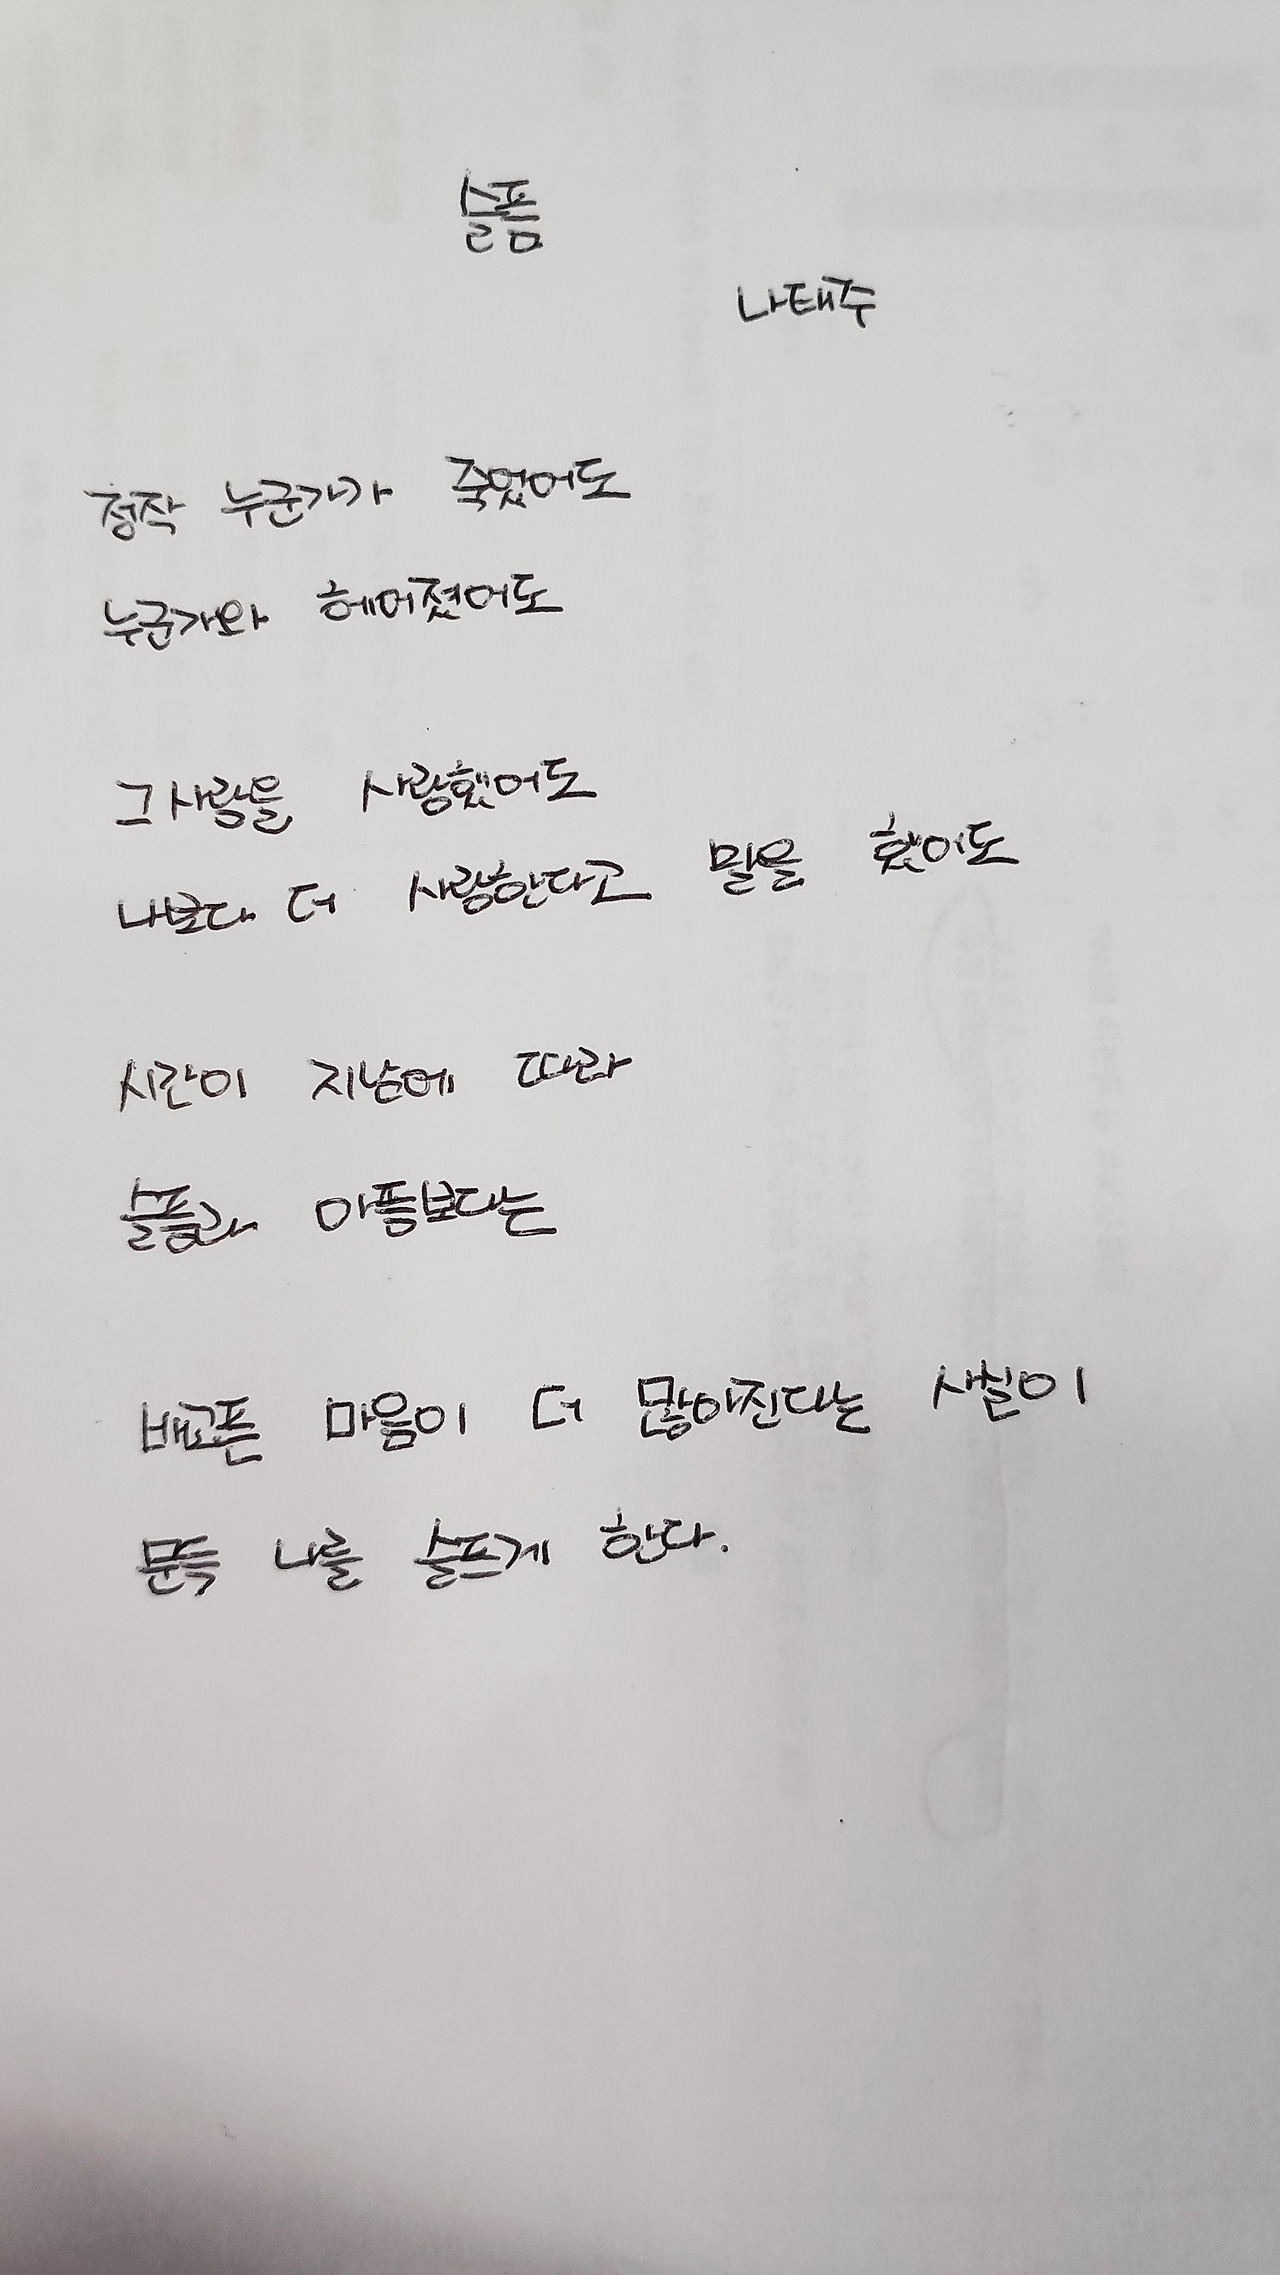 슬픔
나태주
정작 누군가가 죽었어도
누군가와 헤어졌어도
그 사람을 사랑했어도
나보다 더 사랑한다고 말을 했어도
시간이 지남에 따라
슬픔과 아픔보다는
배고픈 마음이 더 많아진다는 사실이
문득 나를 슬프게 한다.